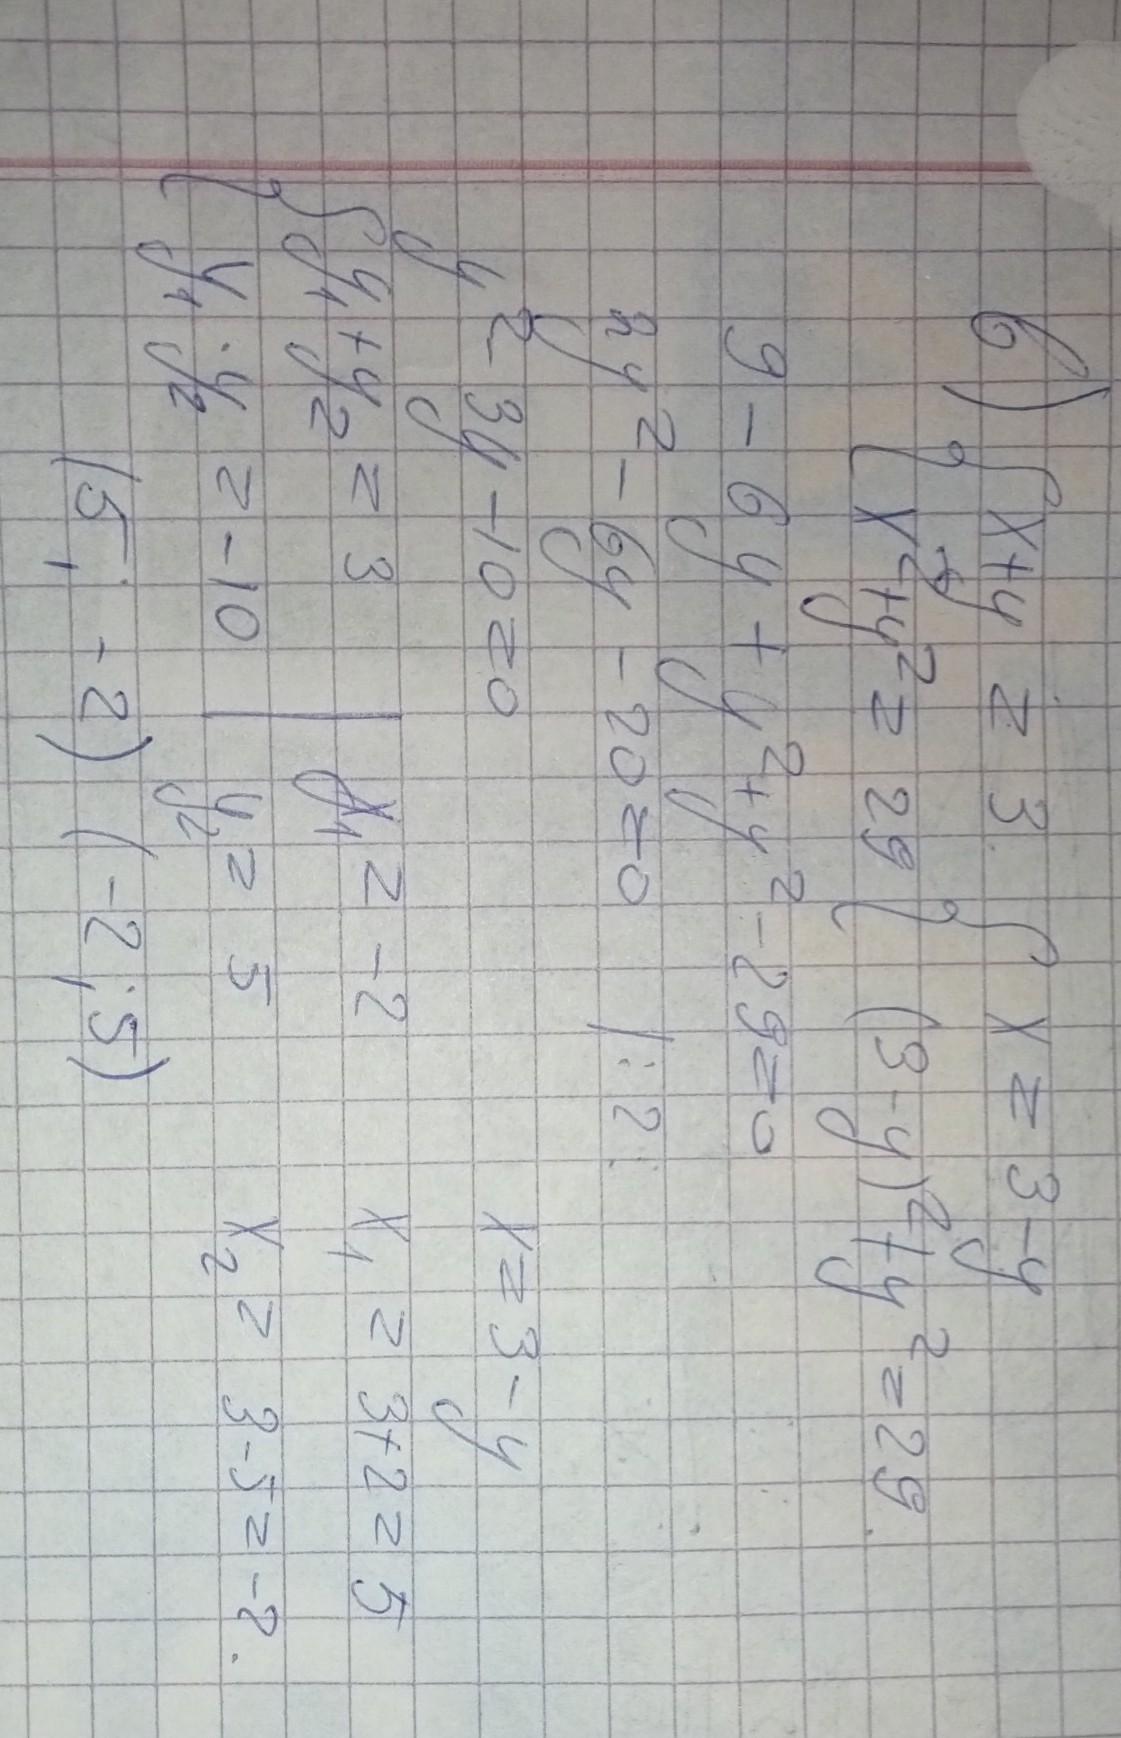 б) { x+y = 3 { x = 3-y
{ x²+y² = 29 { (3-y)²+y² = 29
9 - 6y + y²+y² - 29=0
2y² - 6y - 20=0 |:2
y² - 3y - 10=0 x=3-y
{ y₁+y₂ = 3 | y₁ = -2 x₁ = 3+2 = 5
{ y₁·y₂ = -10 | y₂ = 5 x₂ = 3-5 = -2.
(5; -2) (-2; 5)